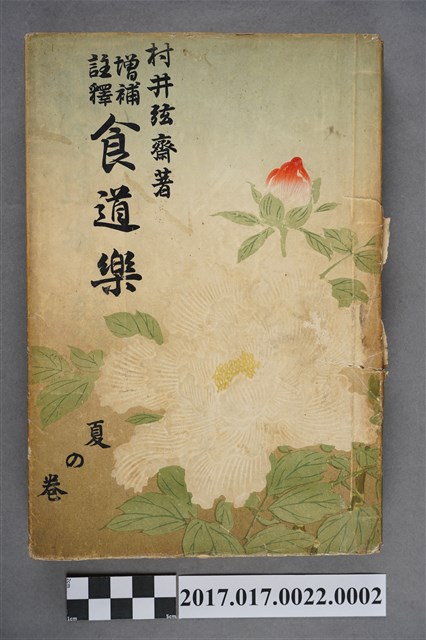 村井弦齋著
增補
註釋
食道樂
夏の卷
2017.017.0022.0002
1cm
5cm